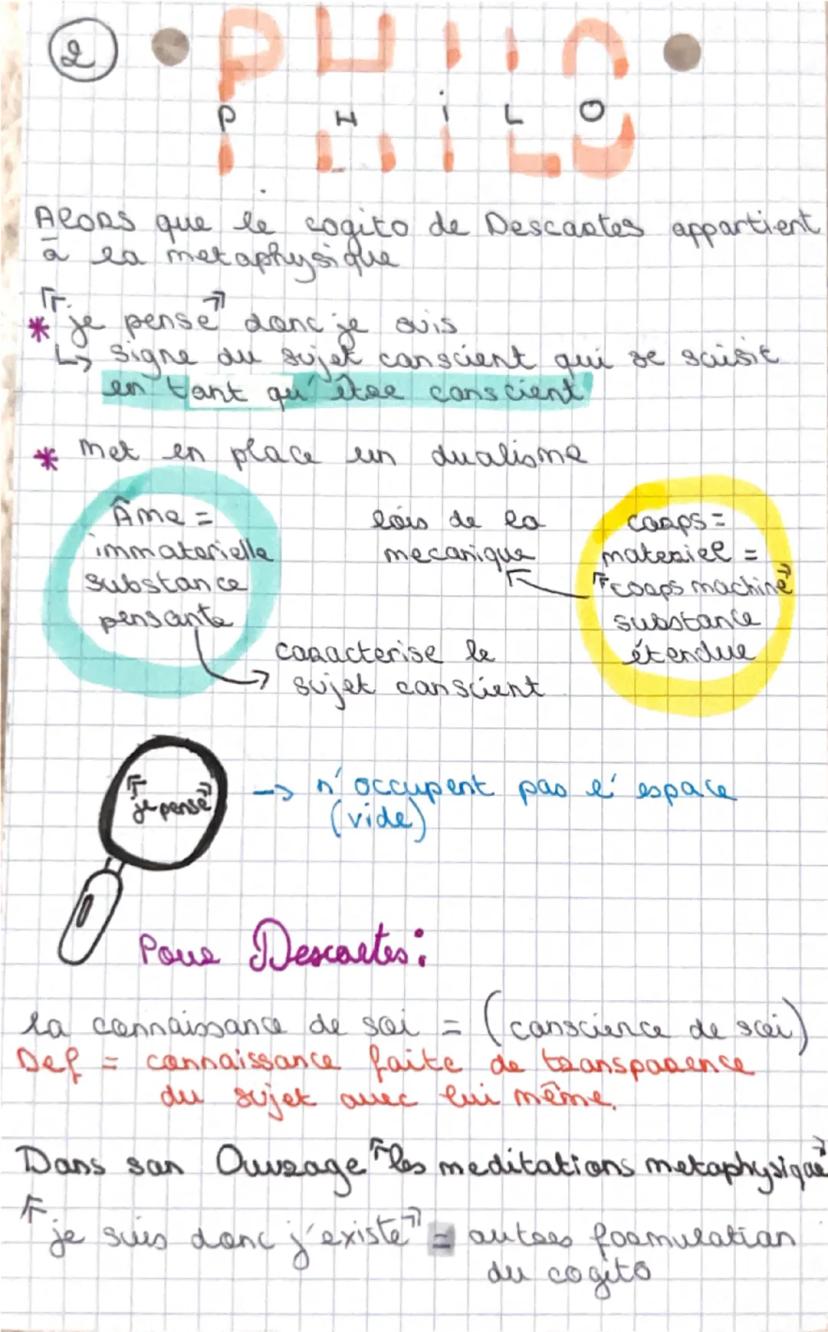 2
PHILO
PHILO
Alors que le cogito de Descartes appartient
à la metaphysique
* "je pense" donc je suis
↳ signe du sujet conscient qui se saisit
en tant qu'être conscient
* met en place un dualisme
Âme =
immaterielle
substance
pensante
lois de la
mecanique
corps =
materiel =
"corps machine"
substance
étendue
caracterise le
sujet conscient
"je pense"
→ n'occupent pas l'espace
(vide)
Pour Descartes :
la connaissance de soi = (conscience de soi)
Def = connaissance faite de transparence
du sujet avec lui même.
Dans son Ouvrage "les meditations metaphysique"
"je suis donc j'existe" = autres formulation
du cogito